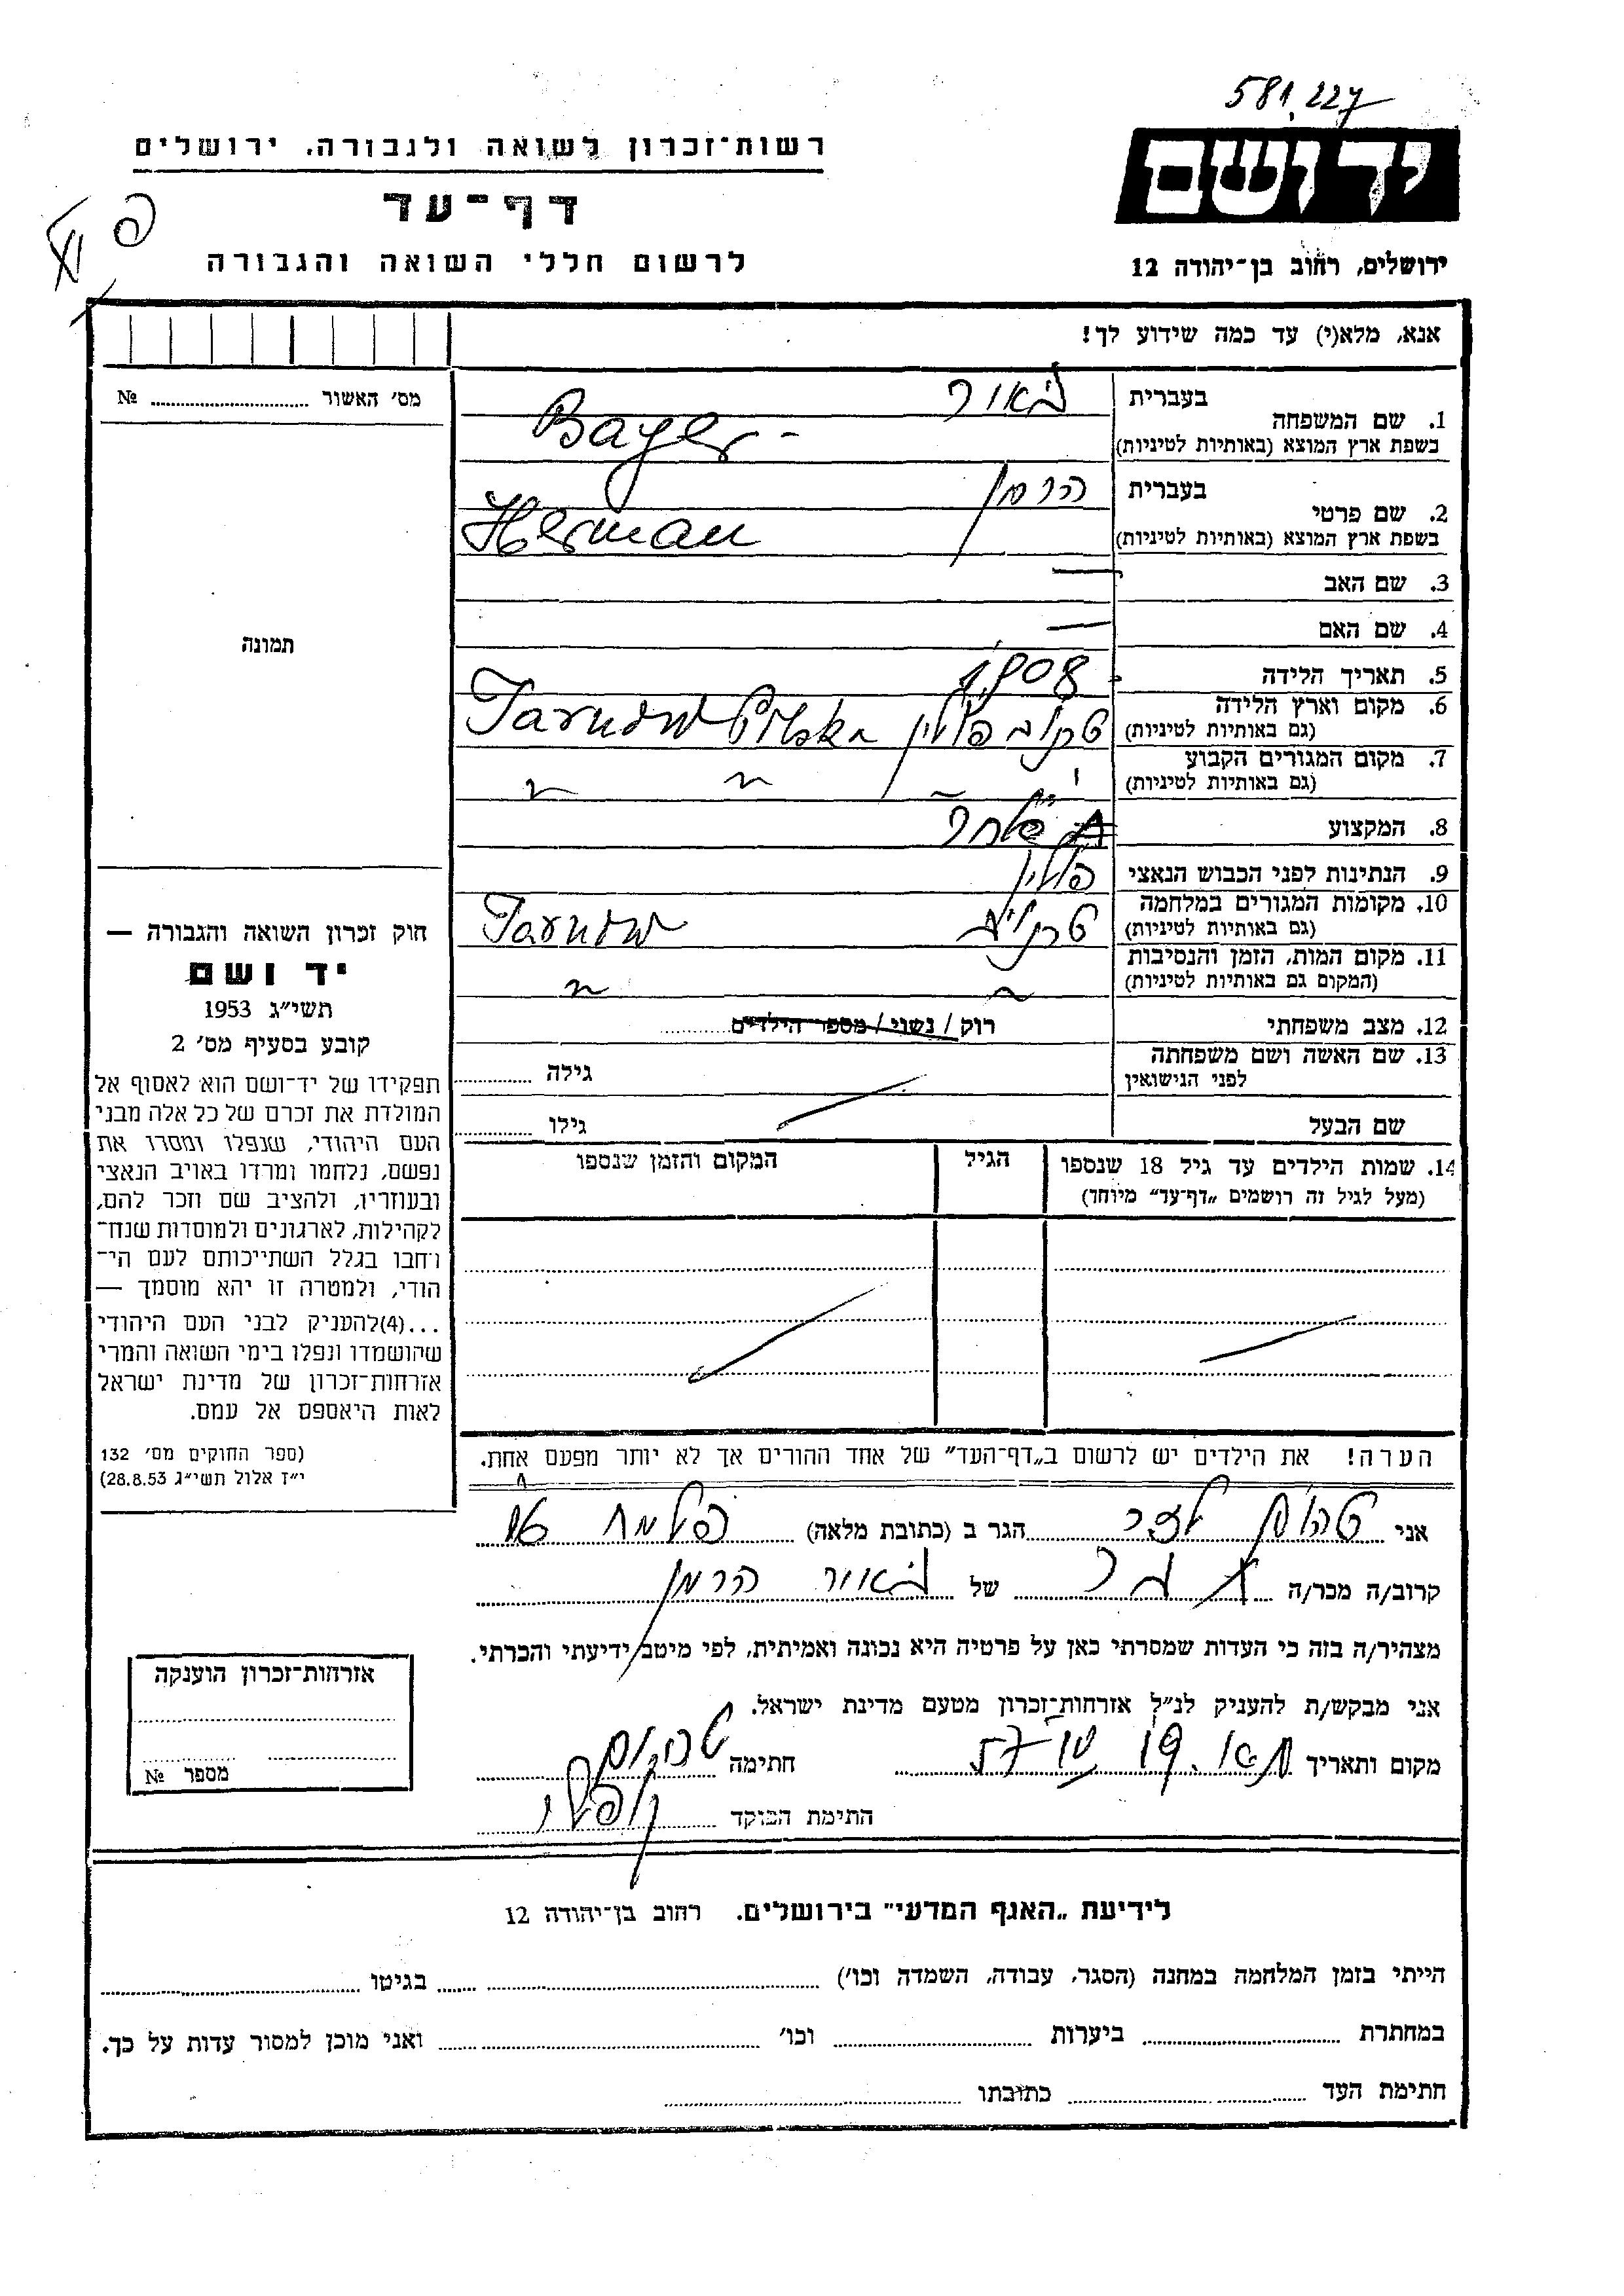 581,227
ידושם
רשות־זכרון לשואה ולגבורה, ירושלים
דף־עד
לרשום חללי השואה והגבורה
ירושלים, רחוב בן־יהודה 12
אנא, מלא(י) עד כמה שידוע לך!
מס׳ האשור № 
1. שם המשפחה
בעברית באור
בשפת ארץ המוצא (באותיות לטיניות) Bager
2. שם פרטי
בעברית הרמן
בשפת ארץ המוצא (באותיות לטיניות) Herman
3. שם האב —
4. שם האם —
5. תאריך הלידה 1908
6. מקום וארץ הלידה
(גם באותיות לטיניות) פולין Tarnow Polska
7. מקום המגורים הקבוע
(גם באותיות לטיניות) " " "
8. המקצוע
9. הנתינות לפני הכבוש הנאצי פולין
10. מקומות המגורים במלחמה
(גם באותיות לטיניות) Tarnow
11. מקום המות, הזמן והנסיבות
(המקום גם באותיות לטיניות) " "
12. מצב משפחתי רוק / נשוי / מספר הילדים
13. שם האשה ושם משפחתה
לפני הנישואין גילה
שם הבעל גילו
14. שמות הילדים עד גיל 18 שנספו הגיל המקום והזמן שנספו
(מעל לגיל זה רושמים „דף־עד" מיוחד)
תמונה
חוק זכרון השואה והגבורה —
יד ושם
תשי״ג 1953
קובע בסעיף מס׳ 2
תפקידו של יד־ושם הוא לאסוף אל
המולדת את זכרם של כל אלה מבני
העם היהודי, שנפלו ומסרו את
נפשם, נלחמו ומרדו באויב הנאצי
ובעוזריו, ולהציב שם וזכר להם,
לקהילות, לארגונים ולמוסדות שנח־
רחבו בגלל השתייכותם לעם הי־
הודי, ולמטרה זו יהא מוסמך —
...(4)להעניק לבני העם היהודי
שהושמדו ונפלו בימי השואה והמרי
אזרחות־זכרון של מדינת ישראל
לאות היאספם אל עמם.
(ספר החוקים מס׳ 132
י״ז אלול תשי״ג 28.8.53)
הערה! את הילדים יש לרשום ב„דף־העד" של אחד ההורים אך לא יותר מפעם אחת.
אני הגר ב (כתובת מלאה)
קרוב/ה מכר/ה של באור הרמן
מצהיר/ה בזה כי העדות שמסרתי כאן על פרטיה היא נכונה ואמיתית, לפי מיטב ידיעתי והכרתי.
אני מבקש/ת להעניק לנ״ל אזרחות־זכרון מטעם מדינת ישראל.
מקום ותאריך חתימה
חתימת הפוקד
אזרחות־זכרון הוענקה
מספר №
לידיעת „האגף המדעי" בירושלים. רחוב בן־יהודה 12
הייתי בזמן המלחמה במחנה (הסגר, עבודה, השמדה וכו׳) בגיטו
במחתרת ביערות וכו׳ ואני מוכן למסור עדות על כך.
חתימת העד כתובתו